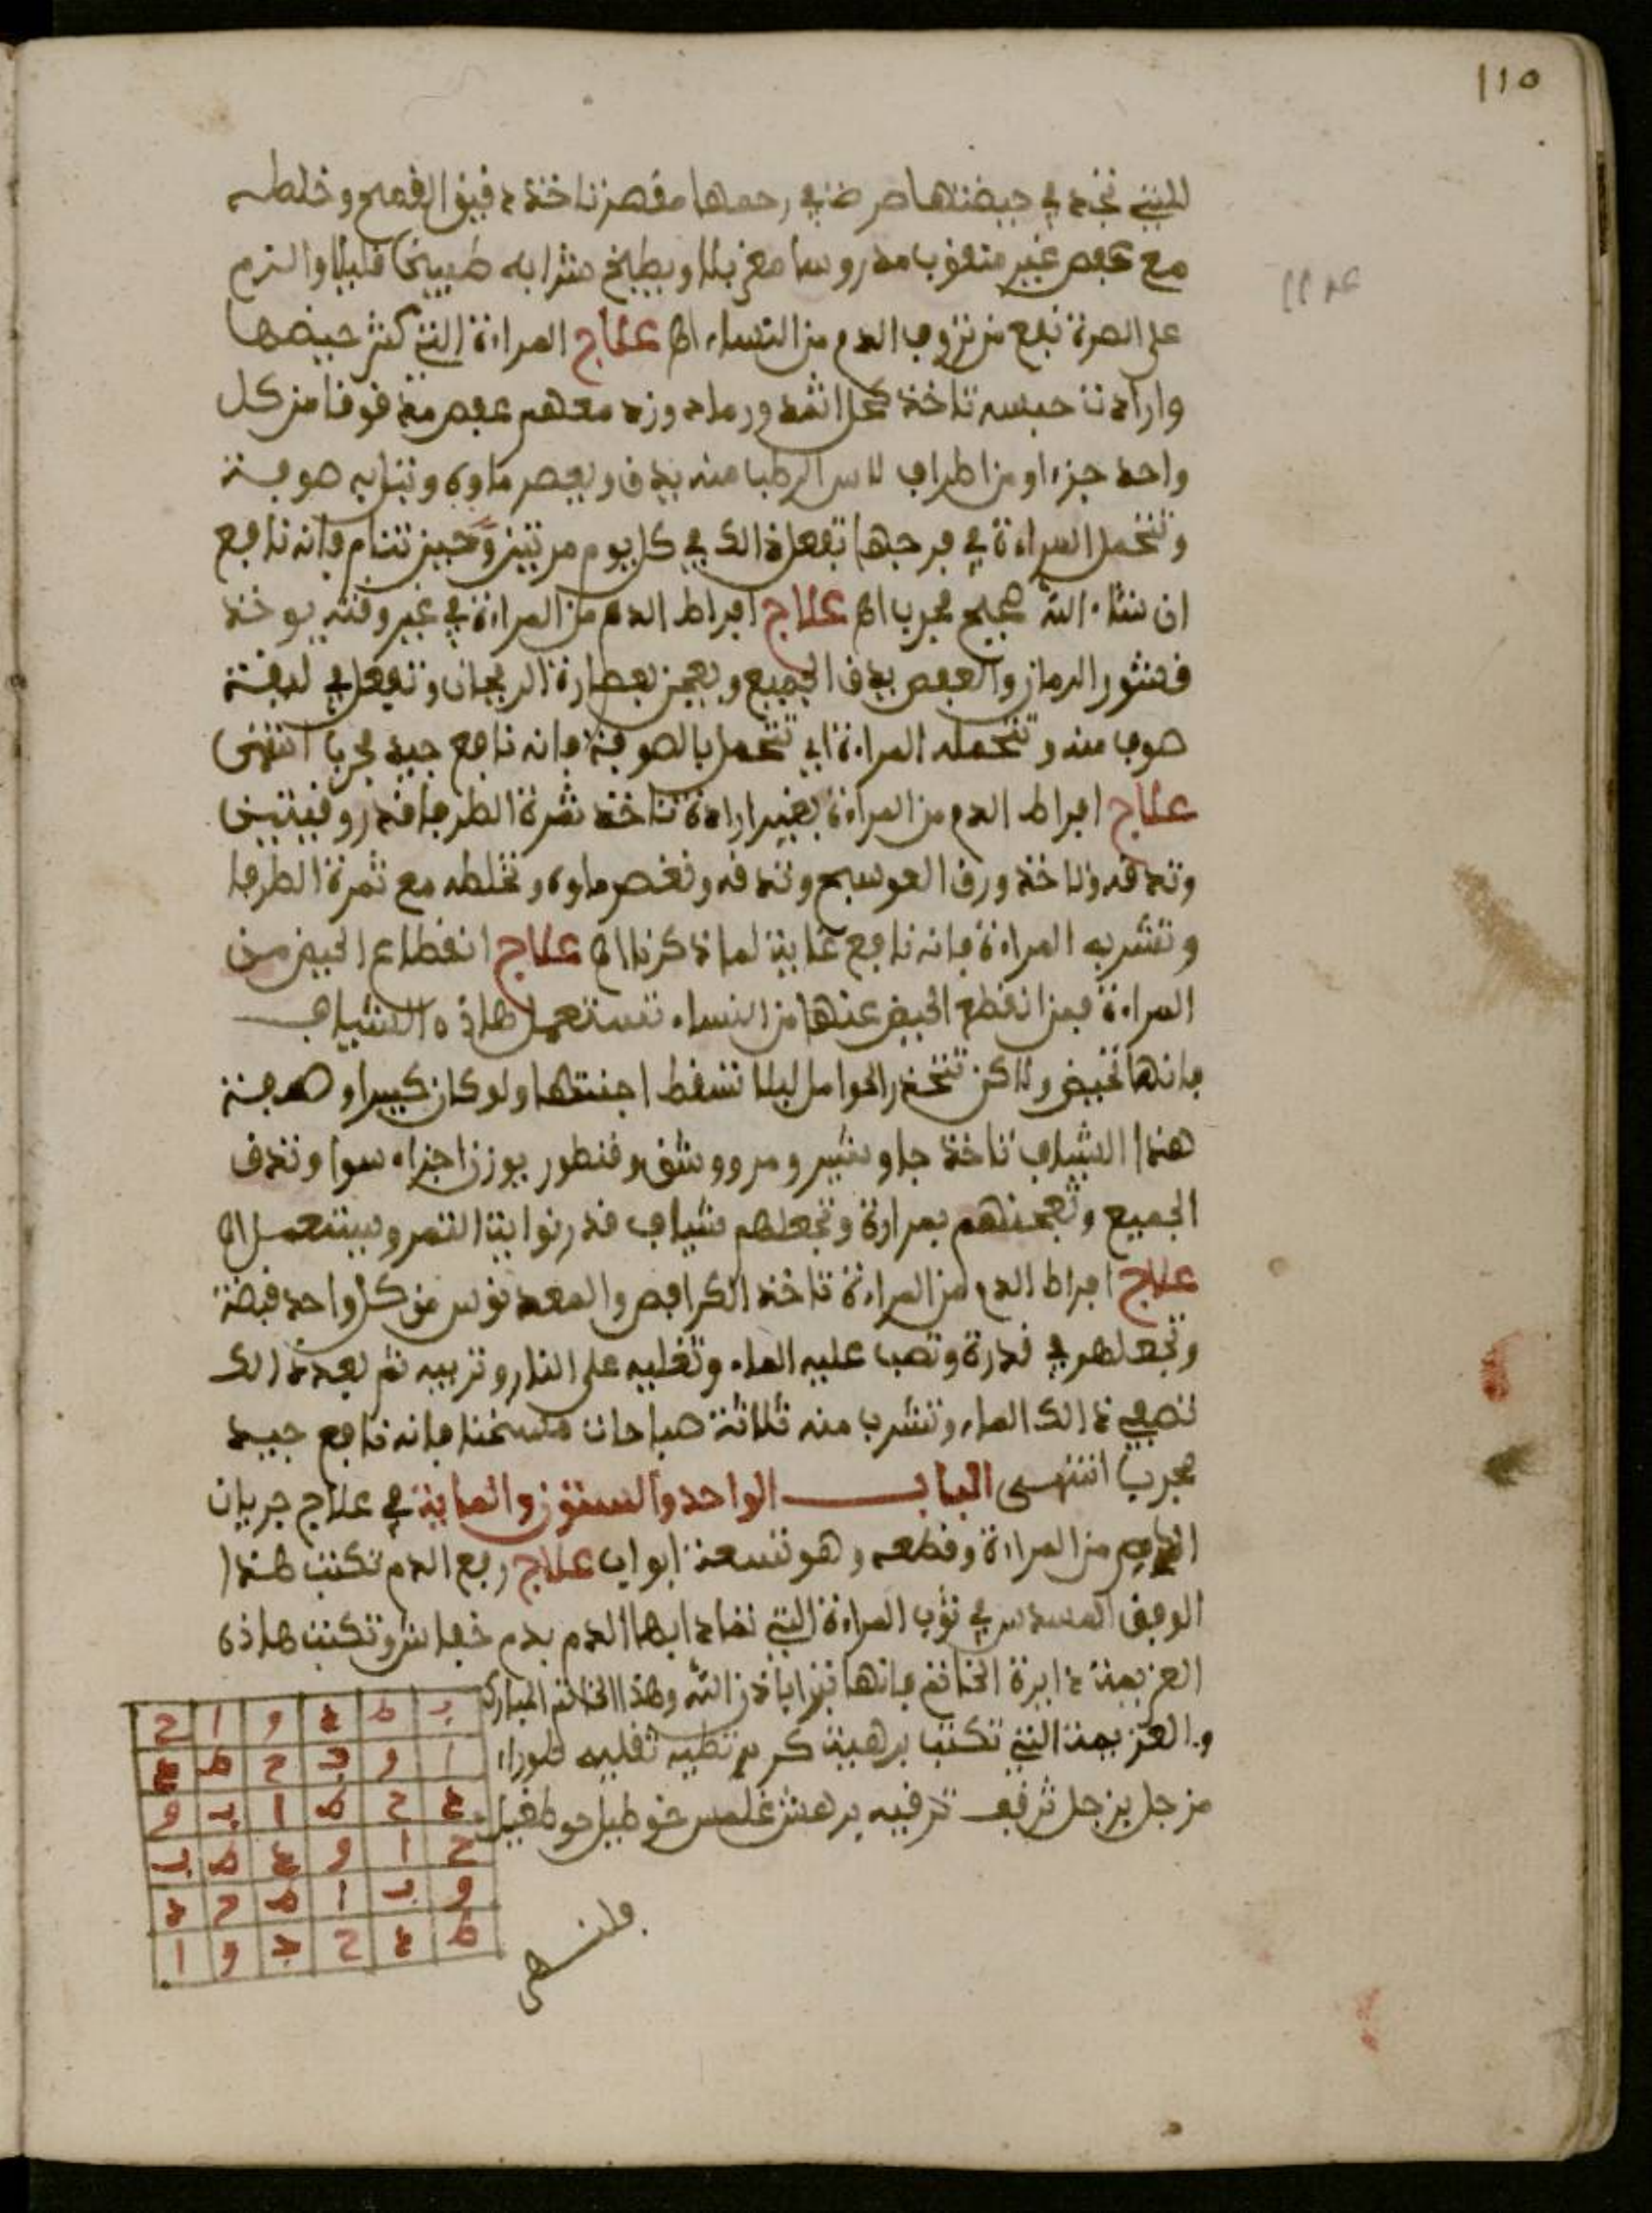 110
للتي تجد في حيضتها مرض في رحمها مغص تاخذ دقيق القمح وخلطه
مع عفص غير مثقوب مدروسا مغربلا ويطبخ طبيخا قليلا والزم
على الصرة نفع من نزوف الدم من النساء اه علاج المراءة التي كثر حيضها
وارادت حبسه تاخذ كحل اثمد ورماد وزد معهم عفص مدقوقا من كل
واحد جزء او من اطراف لاس الرطبا منه يدق ويعصر ماوه وتبل به صوفة
وتتحمل المراءة في فرجها تفعل ذالك في كل يوم مرتين وحين تنام فانه نافع
ان شاء الله صحيح مجرب اه علاج افراط الدم من المراءة في غير وقته يوخذ
قشور الرمان والعفص يدق الجميع ويعجن بعصارة الريحان وتفعل في ليقة
صوف منه وتتحمله المراءة اي تتحمل بالصوفة فانه نافع جيد مجرب انتهى
علاج افراط الدم من المراءة بغير ارادة تاخذ ثمرة الطرفا قدر وقيتين
وتدقه وتاخذ ورق العوسج وتدقه وتعصر ماوه وتخلطه مع ثمرة الطرفا
وتشربه المراءة فانه نافع غاية لما ذكرنا اه علاج انقطاع الحيض من
المراءة فمن انقطع الحيض عنها من النساء تستعمل هاذه الشياف
فانها تحيض ولاكن تتحذر الحوامل ليلا تسقط اجنتها ولو كان كبيرا وصفة
هذا الشياف تاخذ جاوشير ومر ووشق وقنطور يوزن اجزاء سوا وتدق
الجميع وتعجنهم بمرارة وتجعلهم شياف قدر نواية التمر ويستعمل اه
علاج افراط الدم من المراءة تاخذ الكرافص والمعدنوس من كل واحد قبضة
وتجعلهم في قدرة وتصب عليه الماء وتغليه على النار وتربيه ثم بعد ذالك
تصفي ذالك الماء وتشرب منه ثلاثة صباحات مسخنا فانه نافع جيد
مجرب انتهى البـاب الواحد والستون والماية في علاج جريان
الدم من المراءة وقطعه وهو تسعة ابواب علاج ربع الدم تكتب هذا
الوفق المسدس في ثوب المراءة التي تمادا بها الدم بدم خفاش وتكتب هاذه
العزيمة دايرة الخاتم فانها تبرا باذن الله وهذا الخاتم المبارك
والعزيمة التي تكتب برهتية كرير تطيه تغليه طوران
مزجل بزجل ترقب ترقيه برهش غلمش خوطير
ب ط د و ا ح
ا و ب ح ط د
د ح ط ا ب و
ح ا و د ط ب
و ب ا ط ح د
ط د ح ب و ا